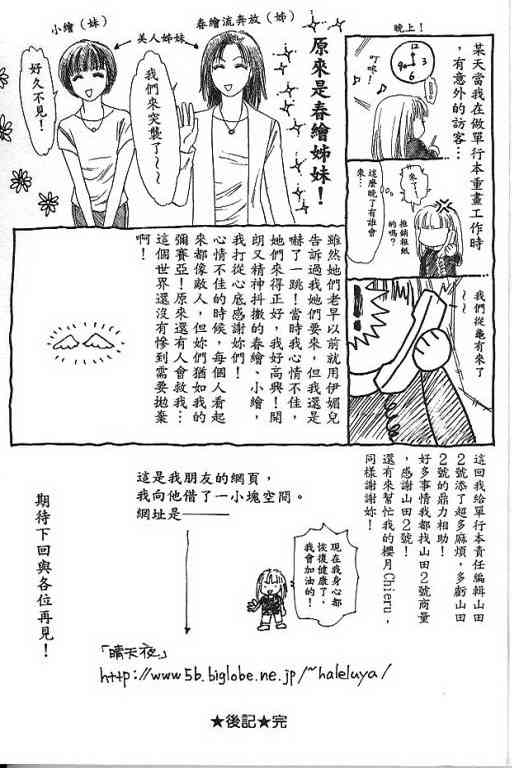 某天當我在做單行本重畫工作時
，有意外的訪客…
晚上！
叮咚！
9
3
6
來了…
這麼晚了有誰會
來…
推銷報紙
的嗎？
我們從龜有來了
～～
原來是春繪姊妹！
春繪流奔放（姊）
美人姊妹
小繪（妹）
我們來突襲了～～
好久不見！
雖然她們老早以前就用伊媚兒
告訴過我她們要來，但我還是
嚇了一跳！當時我心情不佳，
她們來得正好，我好高興！開
朗又精神抖擻的春繪、小繪，
我打從心底感謝妳們！
心情不佳的時候，每個人看起
來都像敵人，但妳們猶如我的
彌賽亞！原來還有人會救我…
這個世界還沒有慘到需要拋棄
啊！
這回我給單行本責任編輯山田
2號添了超多麻煩，多虧山田
2號的鼎力相助！
好多事情我都找山田2號商量
，感謝山田2號！
還有來幫忙我的櫻月Chieru，
同樣謝謝妳！
現在我身心都
恢復健康了，
我會加油的！
這是我朋友的網頁，
我向他借了一小塊空間。
網址是———
「晴天夜」
http://www5b.biglobe.ne.jp/~haleluya/
期待下回與各位再見！
★後記★完